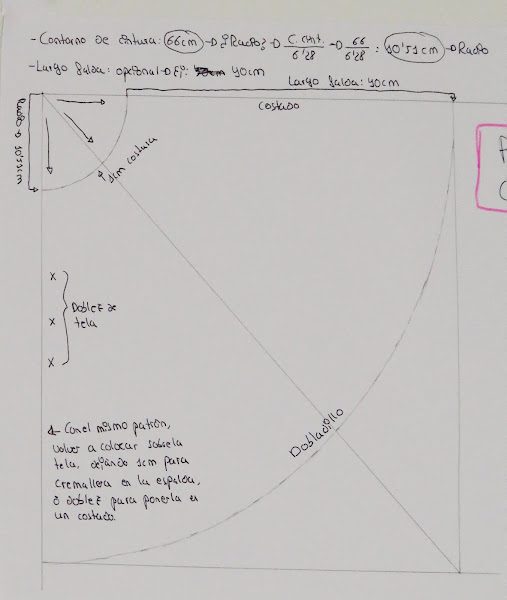 -Contorno de cintura: 66cm → ¿Radio? → C. cint. / 6'28 → 66 / 6'28 : 10'51cm → Radio
-Largo falda: opcional → Ej: 40cm
Largo falda: 40cm
costado
Radio → 10'51cm
1cm costura
x
x Doblez de
tela
x
Dobladillo
Con el mismo patrón,
volver a colocar sobre la
tela, dejando 1cm para
cremallera en la espalda,
ó doblez para ponerla en
un costado.